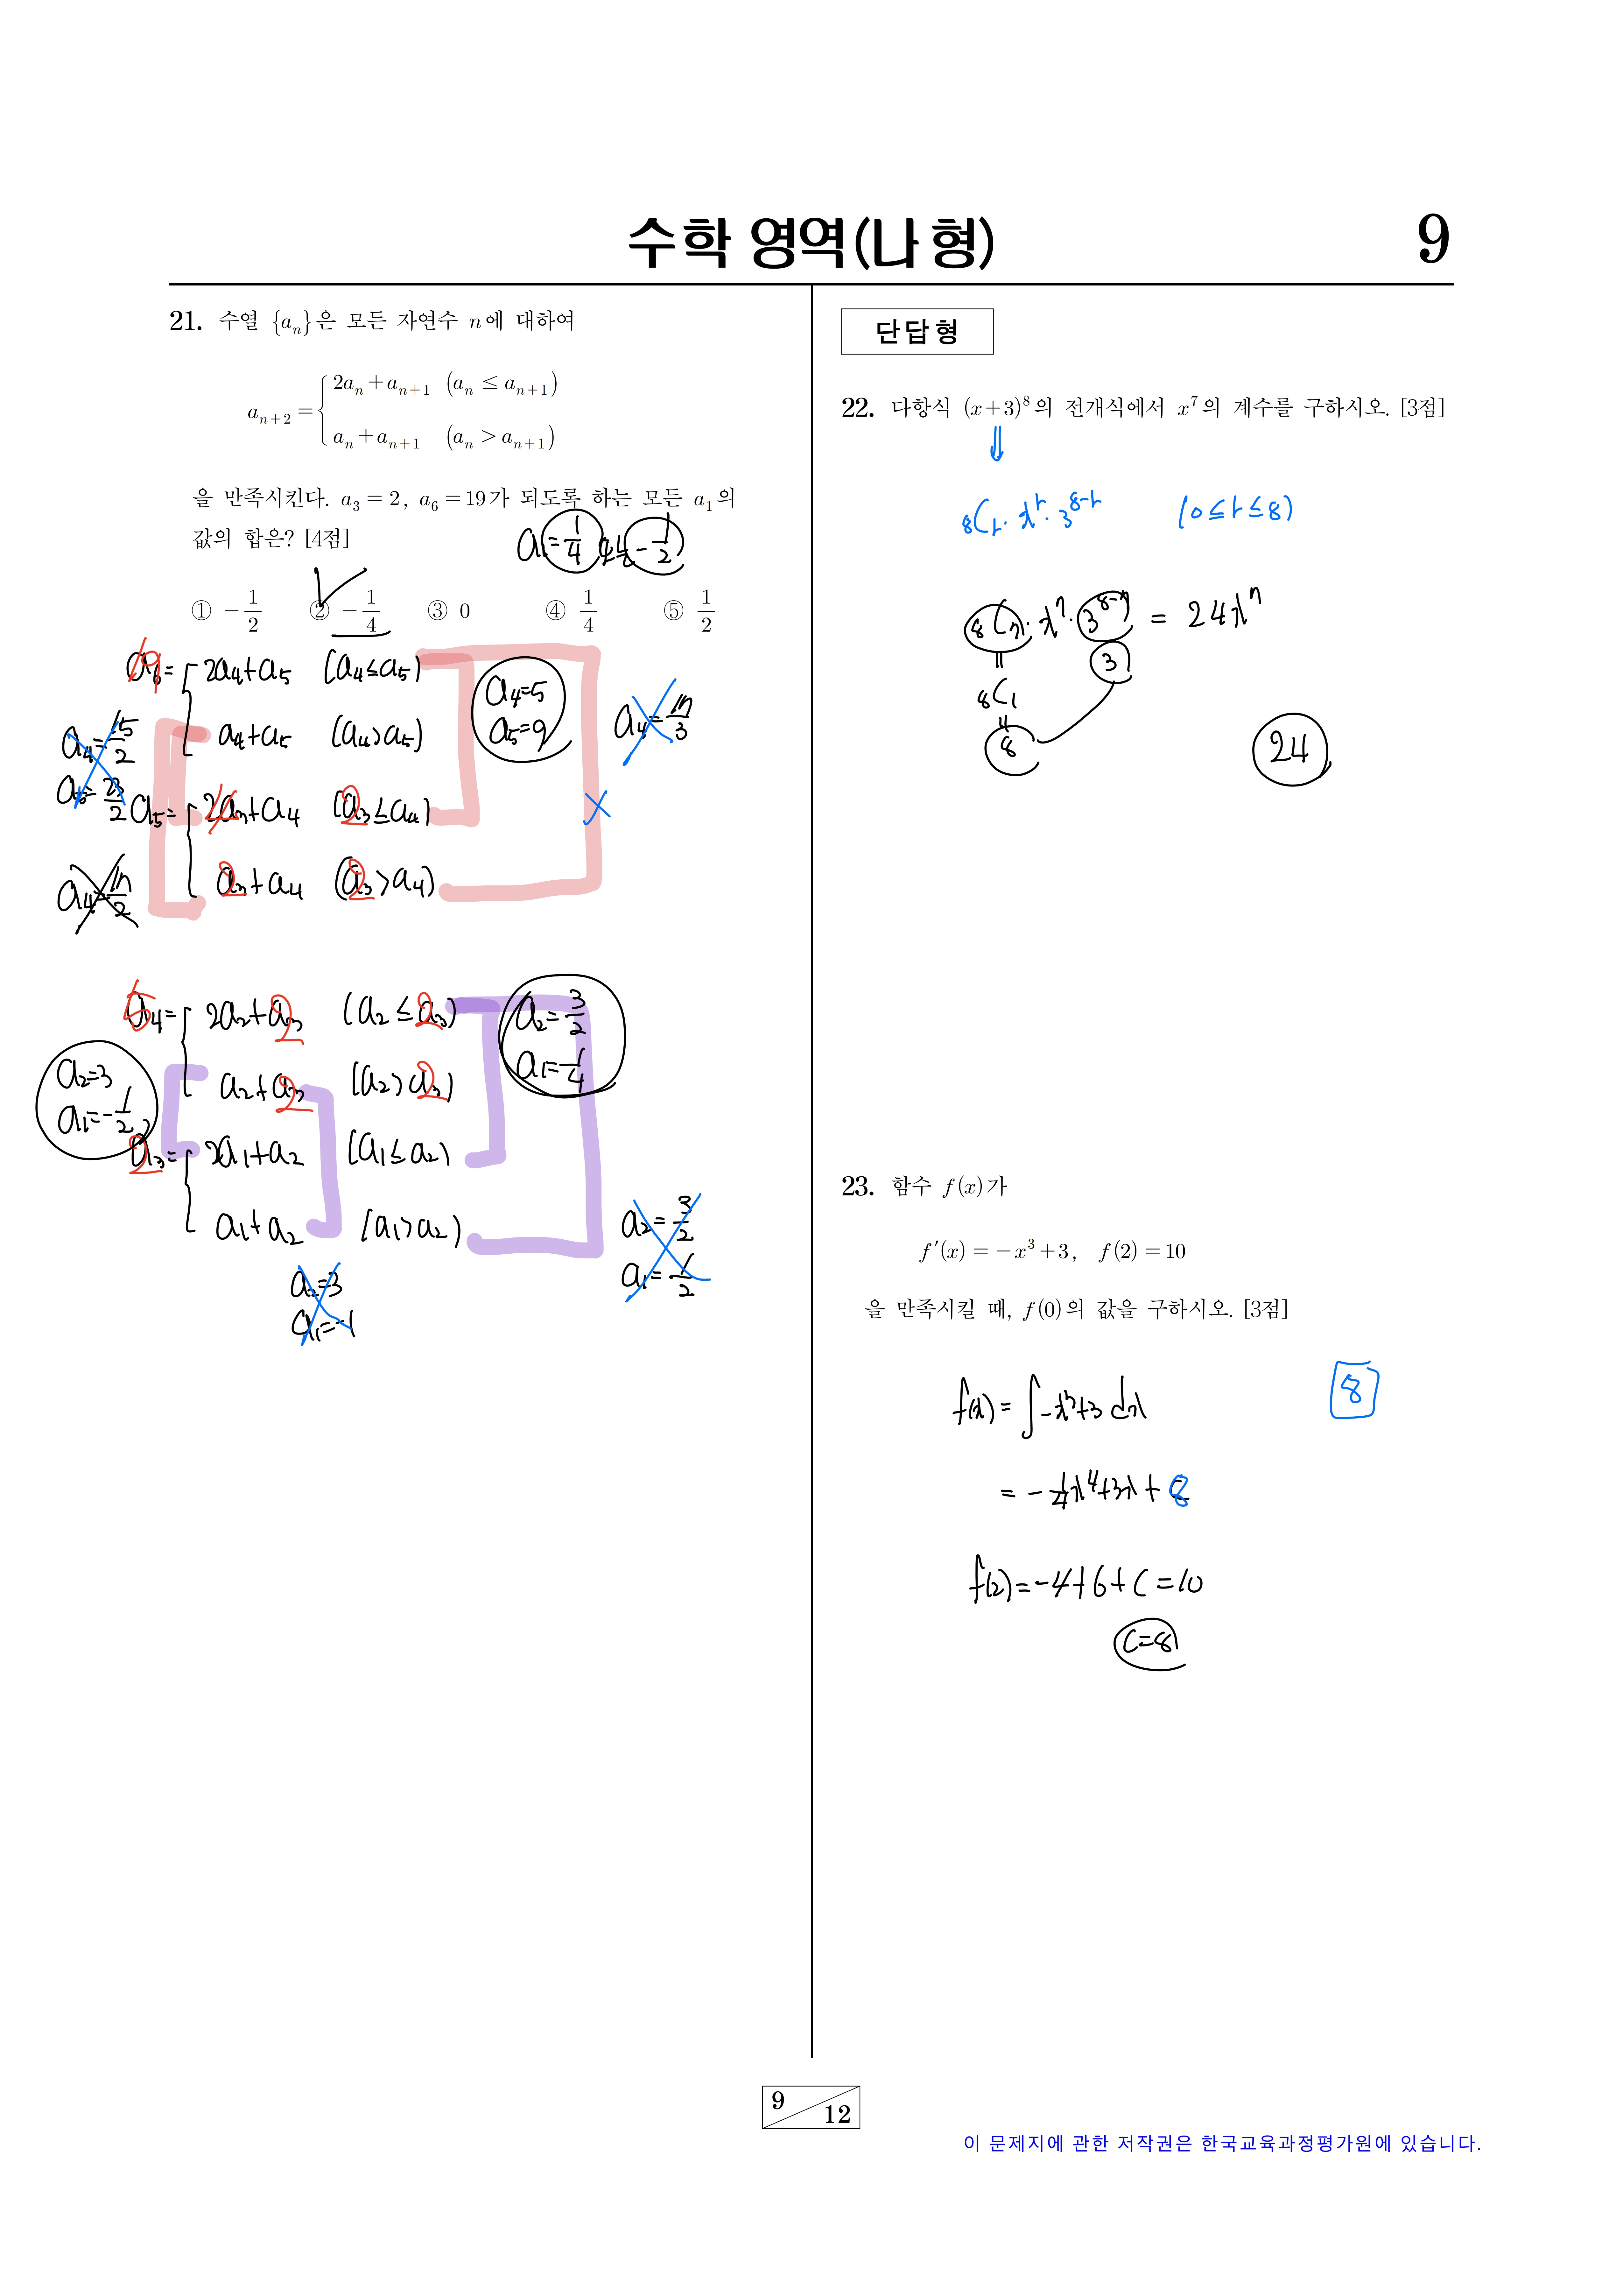 수학 영역(나 형)
9
21. 수열 {aₙ}은 모든 자연수 n에 대하여
aₙ₊₂ = { 2aₙ + aₙ₊₁ (aₙ ≤ aₙ₊₁)
aₙ + aₙ₊₁ (aₙ > aₙ₊₁)
을 만족시킨다. a₃ = 2, a₆ = 19가 되도록 하는 모든 a₁의
값의 합은? [4점]
a₁ = 1/4 또는 -1/2
① -1/2 ② -1/4 ③ 0 ④ 1/4 ⑤ 1/2
19 = { 2a₄+a₅ (a₄≤a₅)
a₄+a₅ (a₄>a₅)
a₄=5
a₅=9
a₄=17/3
a₄=15/2
a₅=23/2
a₅= { 4+a₄ (2≤a₄)
2+a₄ (2>a₄)
a₄=17/2
5 = { 2a₂+2 (a₂≤2)
a₂+2 (a₂>2)
a₂=3/2
a₁=1/4
a₂=3
a₁=-1/2
2 = { 2a₁+a₂ (a₁≤a₂)
a₁+a₂ (a₁>a₂)
a₂=3/2
a₁=1/2
a₂=3
a₁=-1
단답형
22. 다항식 (x+3)⁸의 전개식에서 x⁷의 계수를 구하시오. [3점]
⇓
₈Cᵣ · xʳ · 3⁸⁻ʳ (0≤r≤8)
₈C₇ · x⁷ · 3⁸⁻⁷ = 24x⁷
3
₈C₁
8
24
23. 함수 f(x)가
f′(x) = -x³+3, f(2) = 10
을 만족시킬 때, f(0)의 값을 구하시오. [3점]
8
f(x) = ∫-x³+3 dx
= -1/4x⁴+3x+8
f(2)=-4+6+C=10
C=8
9
12
이 문제지에 관한 저작권은 한국교육과정평가원에 있습니다.